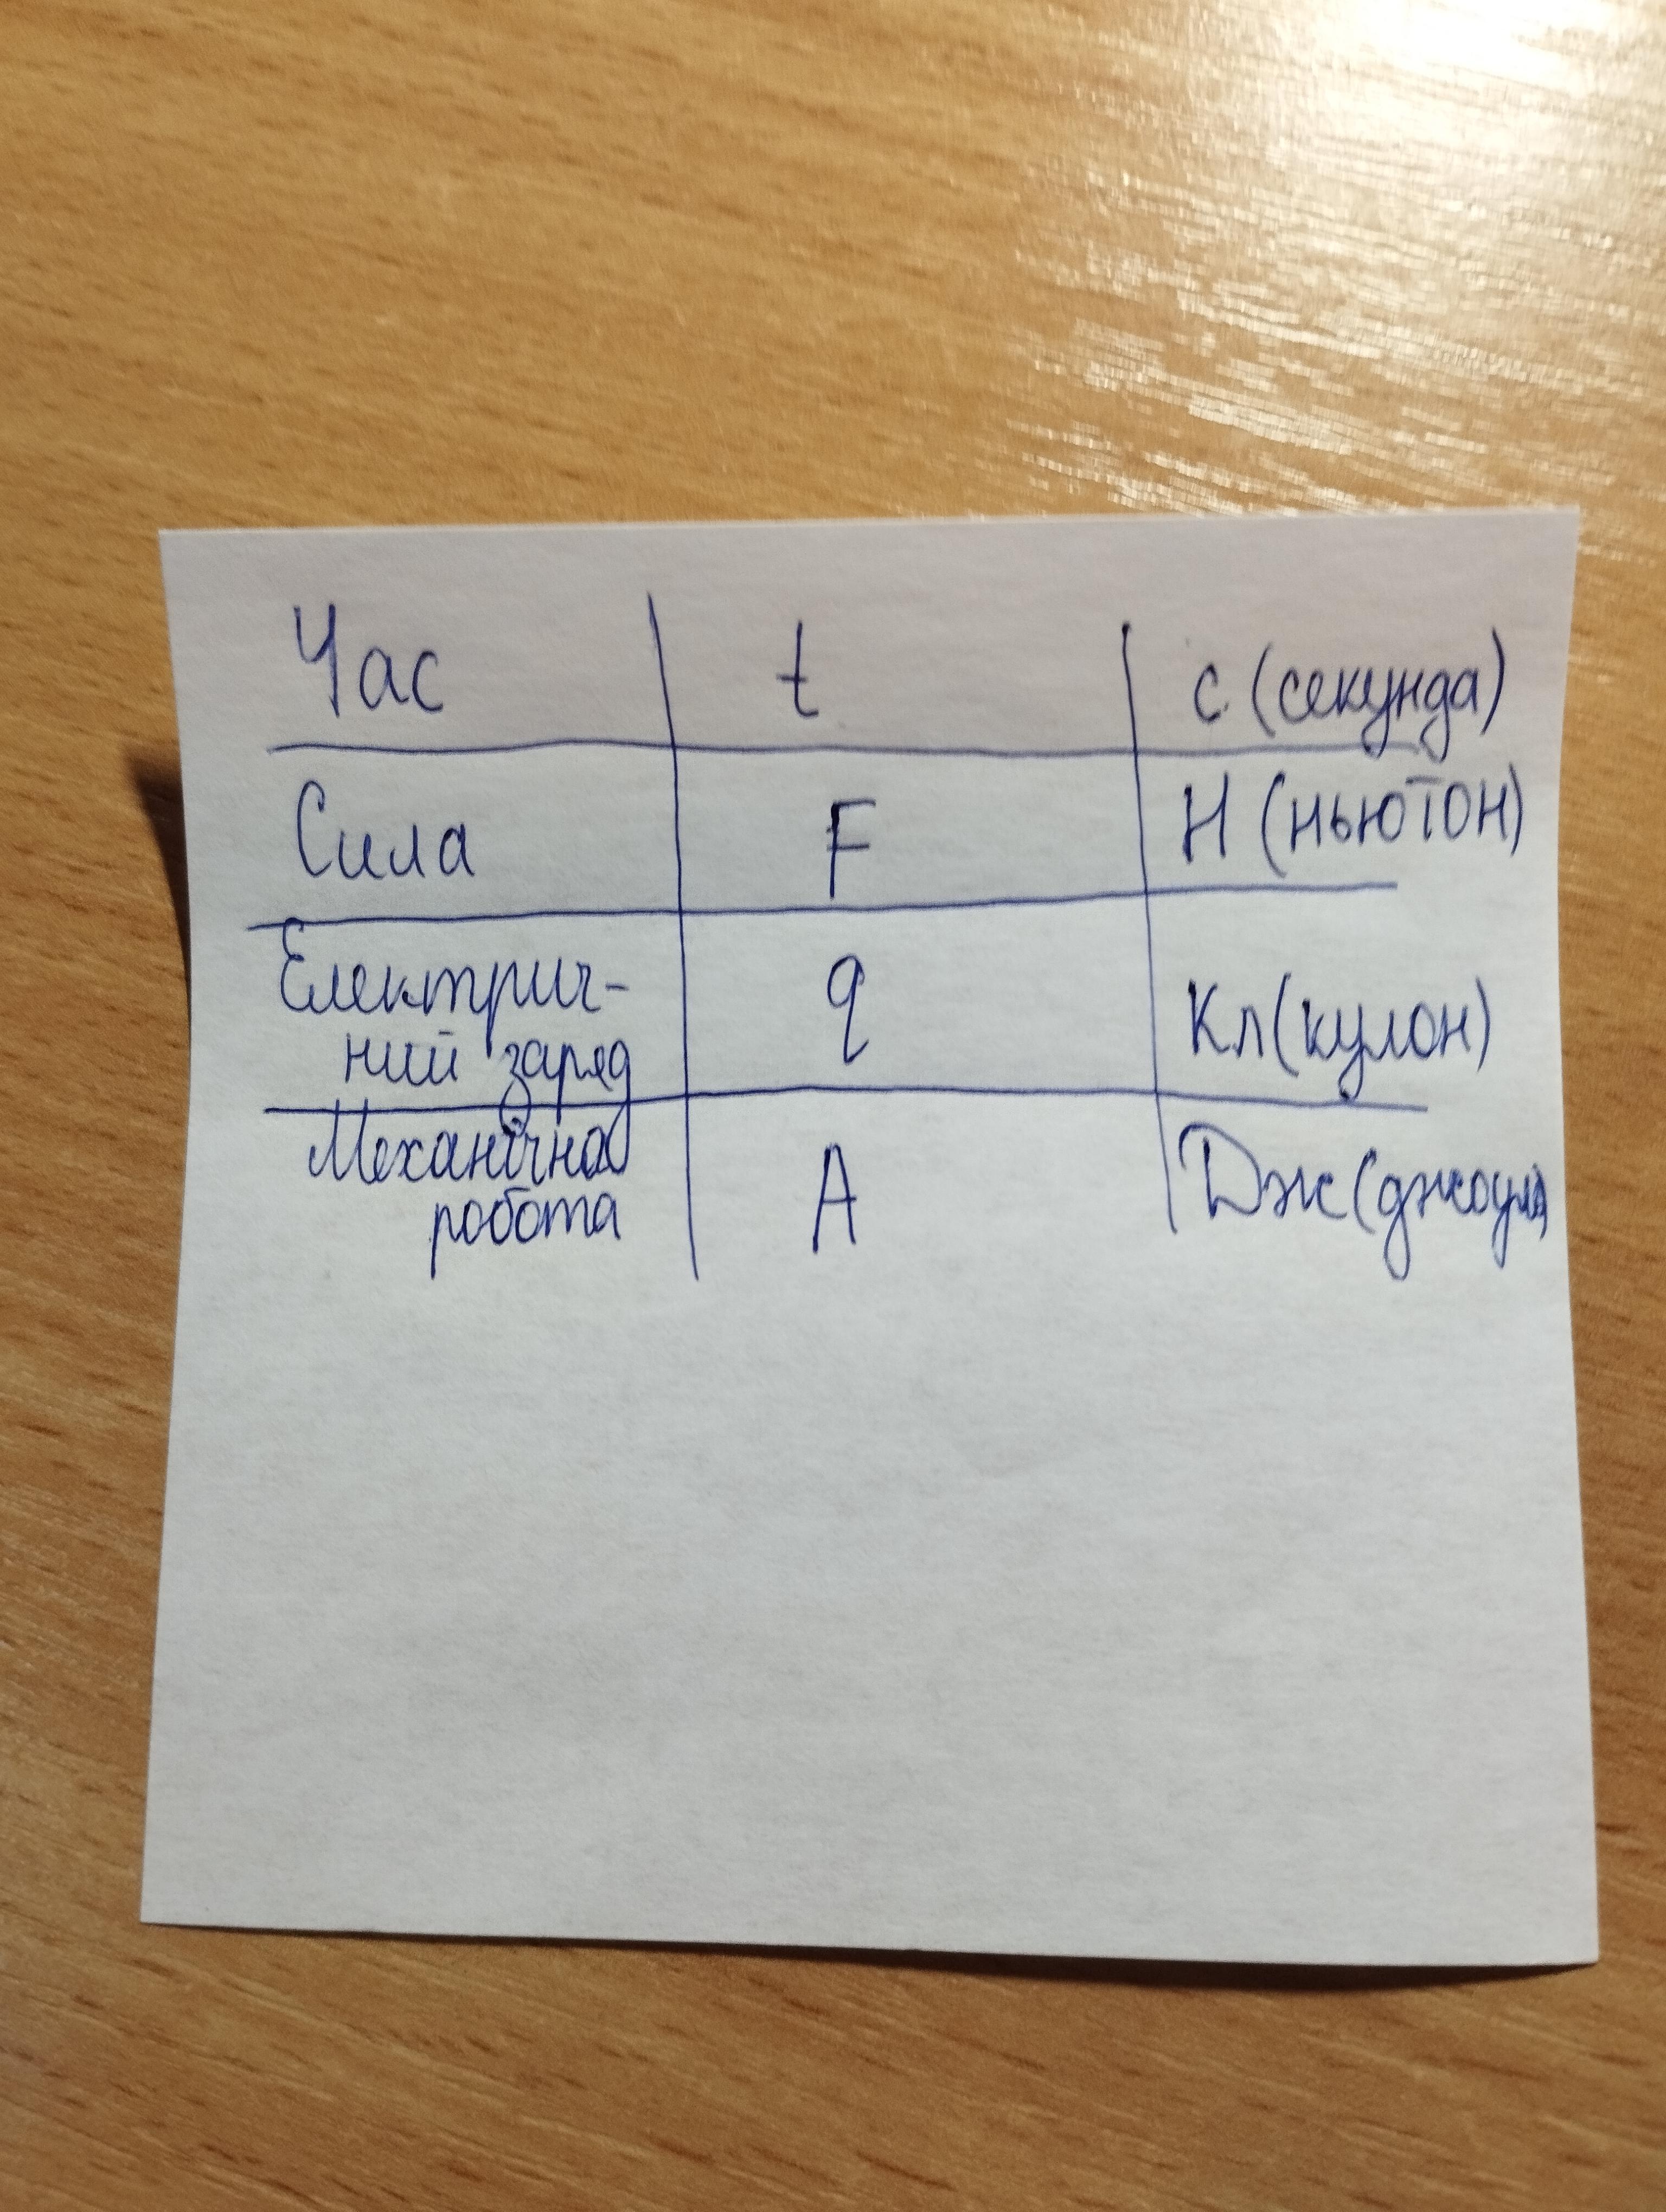 Час t с (секунда)
Сила F Н (ньютон)
Електрич-
ний заряд q Кл (кулон)
Механічна
робота A Дж (джоуль)